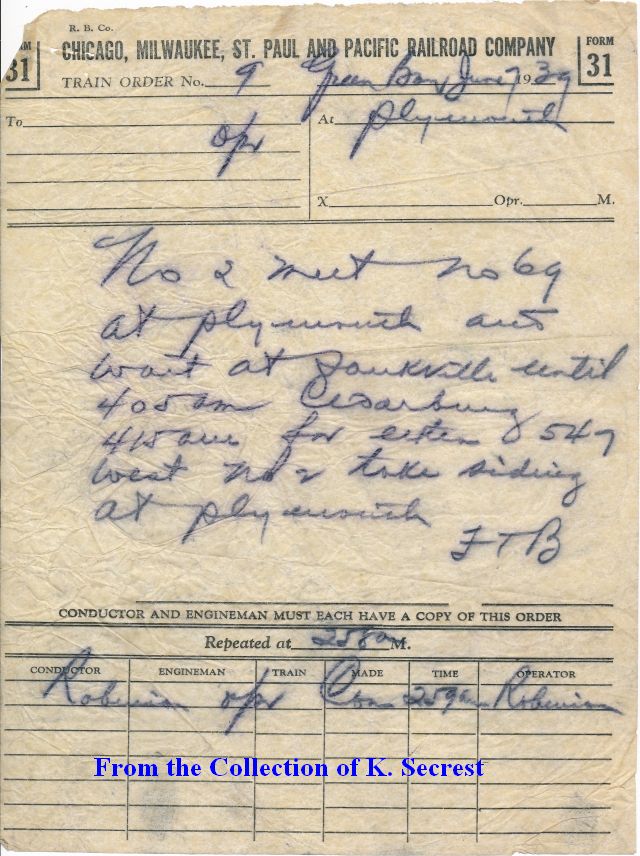 R. B. Co.
FORM 31
CHICAGO, MILWAUKEE, ST. PAUL AND PACIFIC RAILROAD COMPANY
FORM 31
TRAIN ORDER No. 9 Green Bay June 7 1939
To At Plymouth
opr
X Opr. M.
No 2 meet No 69
at Plymouth and
wait at Saukville until
405 am Cedarburg
415 am for extra 547
west No 2 take siding
at Plymouth
FTB
CONDUCTOR AND ENGINEMAN MUST EACH HAVE A COPY OF THIS ORDER
Repeated at 258 am M.
CONDUCTOR ENGINEMAN TRAIN MADE TIME OPERATOR
opr Com 259 am
From the Collection of K. Secrest